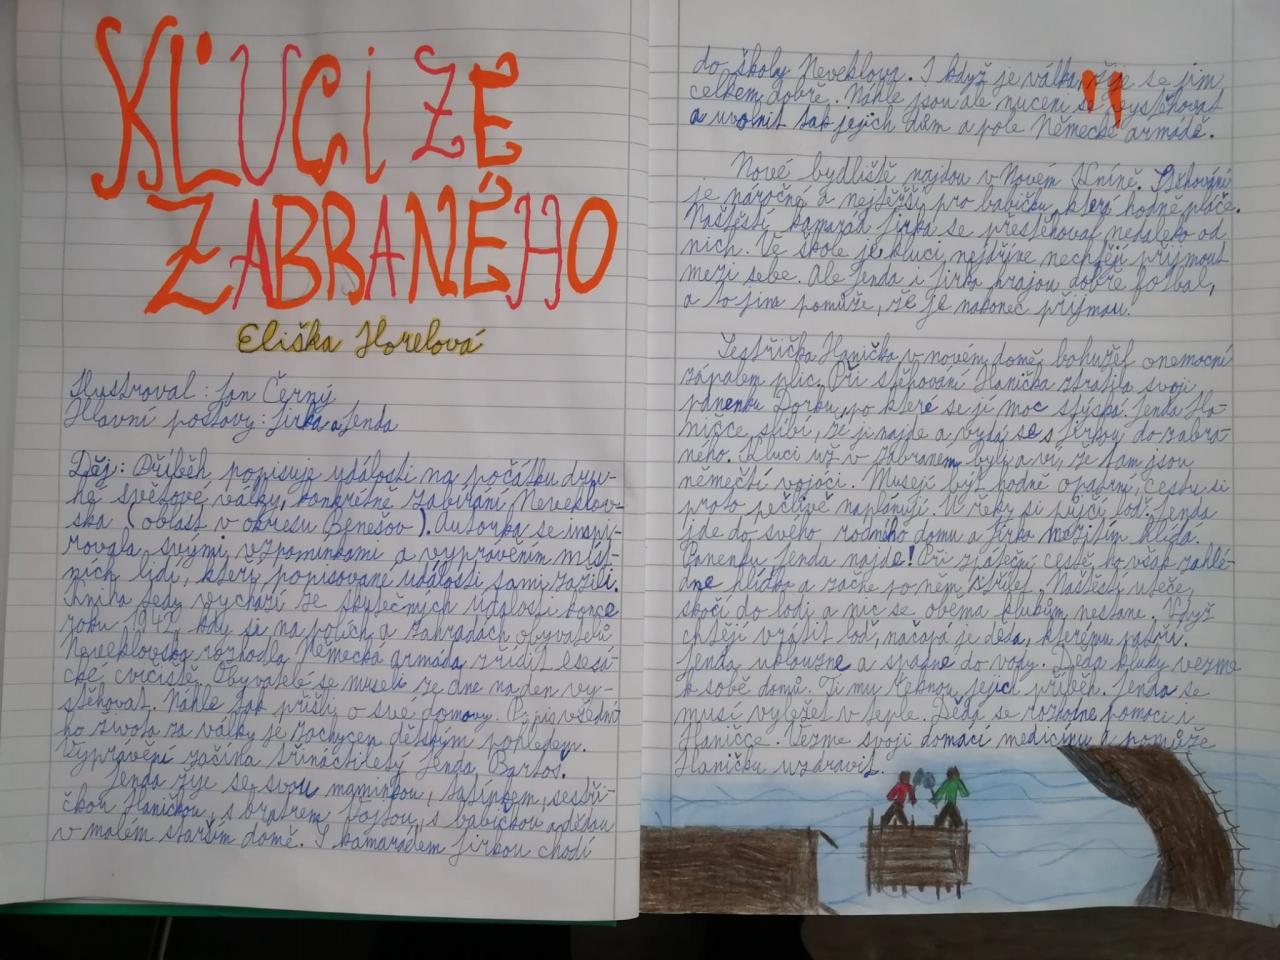 KLUCI ZE
ZABRANÉHO
Eliška Horelová
Ilustroval: Jan Černý
Hlavní postavy: Jirka a Jenda
Děj: Příběh popisuje události na počátku dru-
hé světové války, konkrétně zabírání Neveklov-
ska (oblast v okresu Benešov). Autorka se inspi-
rovala svými vzpomínkami a vyprávěním míst-
ních lidí, kteří popisované události sami zažili.
Kniha tedy vychází ze skutečných událostí konce
roku 1942, kdy si na polích a zahradách obyvatelů
Neveklovska rozhodla Německá armáda zřídit esesá-
cké cvičiště. Obyvatelé se museli ze dne na den vy-
stěhovat. Náhle tak přišli o své domovy. Popis všední-
ho života za války je zachycen dětským pohledem.
Vyprávění začíná třináctiletý Jenda Bartoš.
Jenda žije se svou maminkou, tatínkem, sestři-
čkou Haničkou, s bratrem Fójtou, s babičkou a dědou
v malém starém domě. S kamarádem Jirkou chodí
do školy Neveklova. I když je válka, žije se jim
celkem dobře. Náhle jsou ale nuceni se vystěhovat
a uvolnit tak jejich dům a pole Německé armádě.
Nové bydliště najdou v Novém Kníně. Stěhování
je náročné a nejtěžší pro babičku, která hodně pláče.
Naštěstí kamarád Jirka se přestěhoval nedaleko od
nich. Ve škole je kluci nejdříve nechtějí přijmout
mezi sebe. Ale Jenda i Jirka hrajou dobře fotbal,
a to jim pomůže, že je nakonec přijmou.
Sestřička Hanička v novém domě bohužel onemocní
zápalem plic. Při stěhování Hanička ztratila svoji
panenku Dorku, po které se jí moc stýská. Jenda Ha-
ničce slíbí, že ji najde a vydá se s Jirkou do zabra-
ného. Kluci už v zabraném byli a ví, že tam jsou
němečtí vojáci. Musejí být hodně opatrní, cestu si
proto pečlivě naplánují. U řeky si půjčí loď. Jenda
jde do svého rodného domu a Jirka mezitím hlídá.
Panenku Jenda najde! Při zpáteční cestě ho však zahlé-
dne hlídka a začne po něm střílet. Naštěstí uteče,
skočí do lodi a nic se oběma klukům nestane. Když
chtějí vrátit loď, načapá je děda, kterému patří.
Jenda uklouzne a spadne do vody. Děda kluky vezme
k sobě domů. Ti mu řeknou jejich příběh. Jenda se
musí vyležet v teple. Děda se rozhodne pomoci i
Haničce. Vezme svoji domácí medicínu a pomůže
Haničku uzdravit.